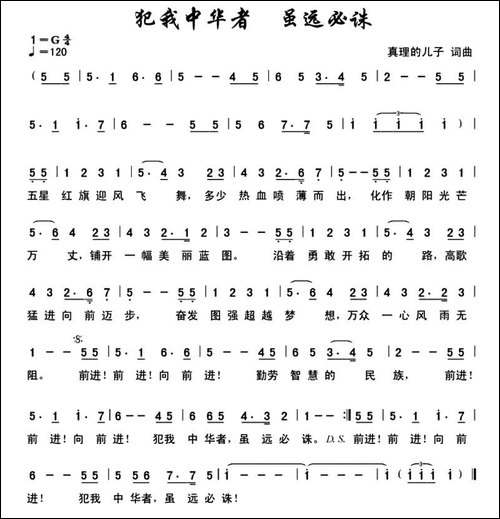 犯我中华者 虽远必诛
1=G 4/4
♩=120
真理的儿子 词曲
( 5 5 | 5· 1 6 6· | 5 - - 4 5 | 6 5 3· 4 | 2 - - 5 5 |
5· 1 1· 7 | 6 - - 5 5 | 5 6 7· 7 | 1 · 1 1 1 | 1 ) |
5 5 | 1 2 3 1 | 5· 4 3 2 3 | 4 3 2· 6 7 | 5 - - 5 5 | 1 2 3 1 |
五星 红旗迎风飞 舞，多少 热血喷 薄而出， 化作 朝阳光芒
5· 6 4 2 3 | 4 4 3 2· 1 | 2 - - 5 5 | 1 2 3 1 | 5· 4 3 2 3 |
万 丈，铺开 一幅美 丽蓝图。 沿着 勇敢开拓的 路，高歌
4 3 2· 6 7 | 5 - - 5 5 | 1 2 3 1 | 5· 6 4 2 3 | 4 3 2· 2 3 |
猛进向 前迈步， 奋发 图强超越梦 想，万众 一心风 雨无
1 - - 5 5 | 5· 1 1· 2 | 6 - - 4 5 | 6 5 3· 4 | 2 - - 5 5 |
阻。 前进！前 进！向 前进！ 勤劳 智慧的 民族， 前进！
5· 1 1· 7 | 6 - - 4 5 | 5 6 5 4· 3 | 2 - - 1 - :‖ 5 5 | 5· 1 1· 7 |
前 进！向 前进！ 犯我 中华者，虽 远 必 诛。D.S. 前进！前 进！向 前
6 - - 5 5 | 5 5 6 7· 7 | 1 - - - | 1 - - - | 1 ( 1 1 1 | 1 ) ‖
进！ 犯我 中 华者，虽 远必 诛！